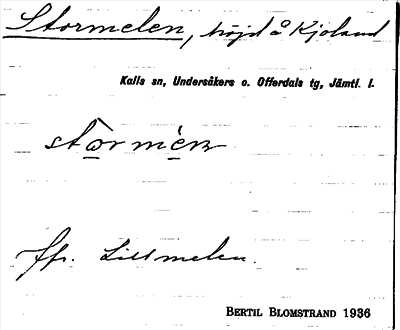 Stormelen, höjd å Kjoland
Kalls sn, Undersåkers o. Offerdals tg, Jämtl. l.
stωr mèn
Jfr. Lillmelen.
BERTIL BLOMSTRAND 1936